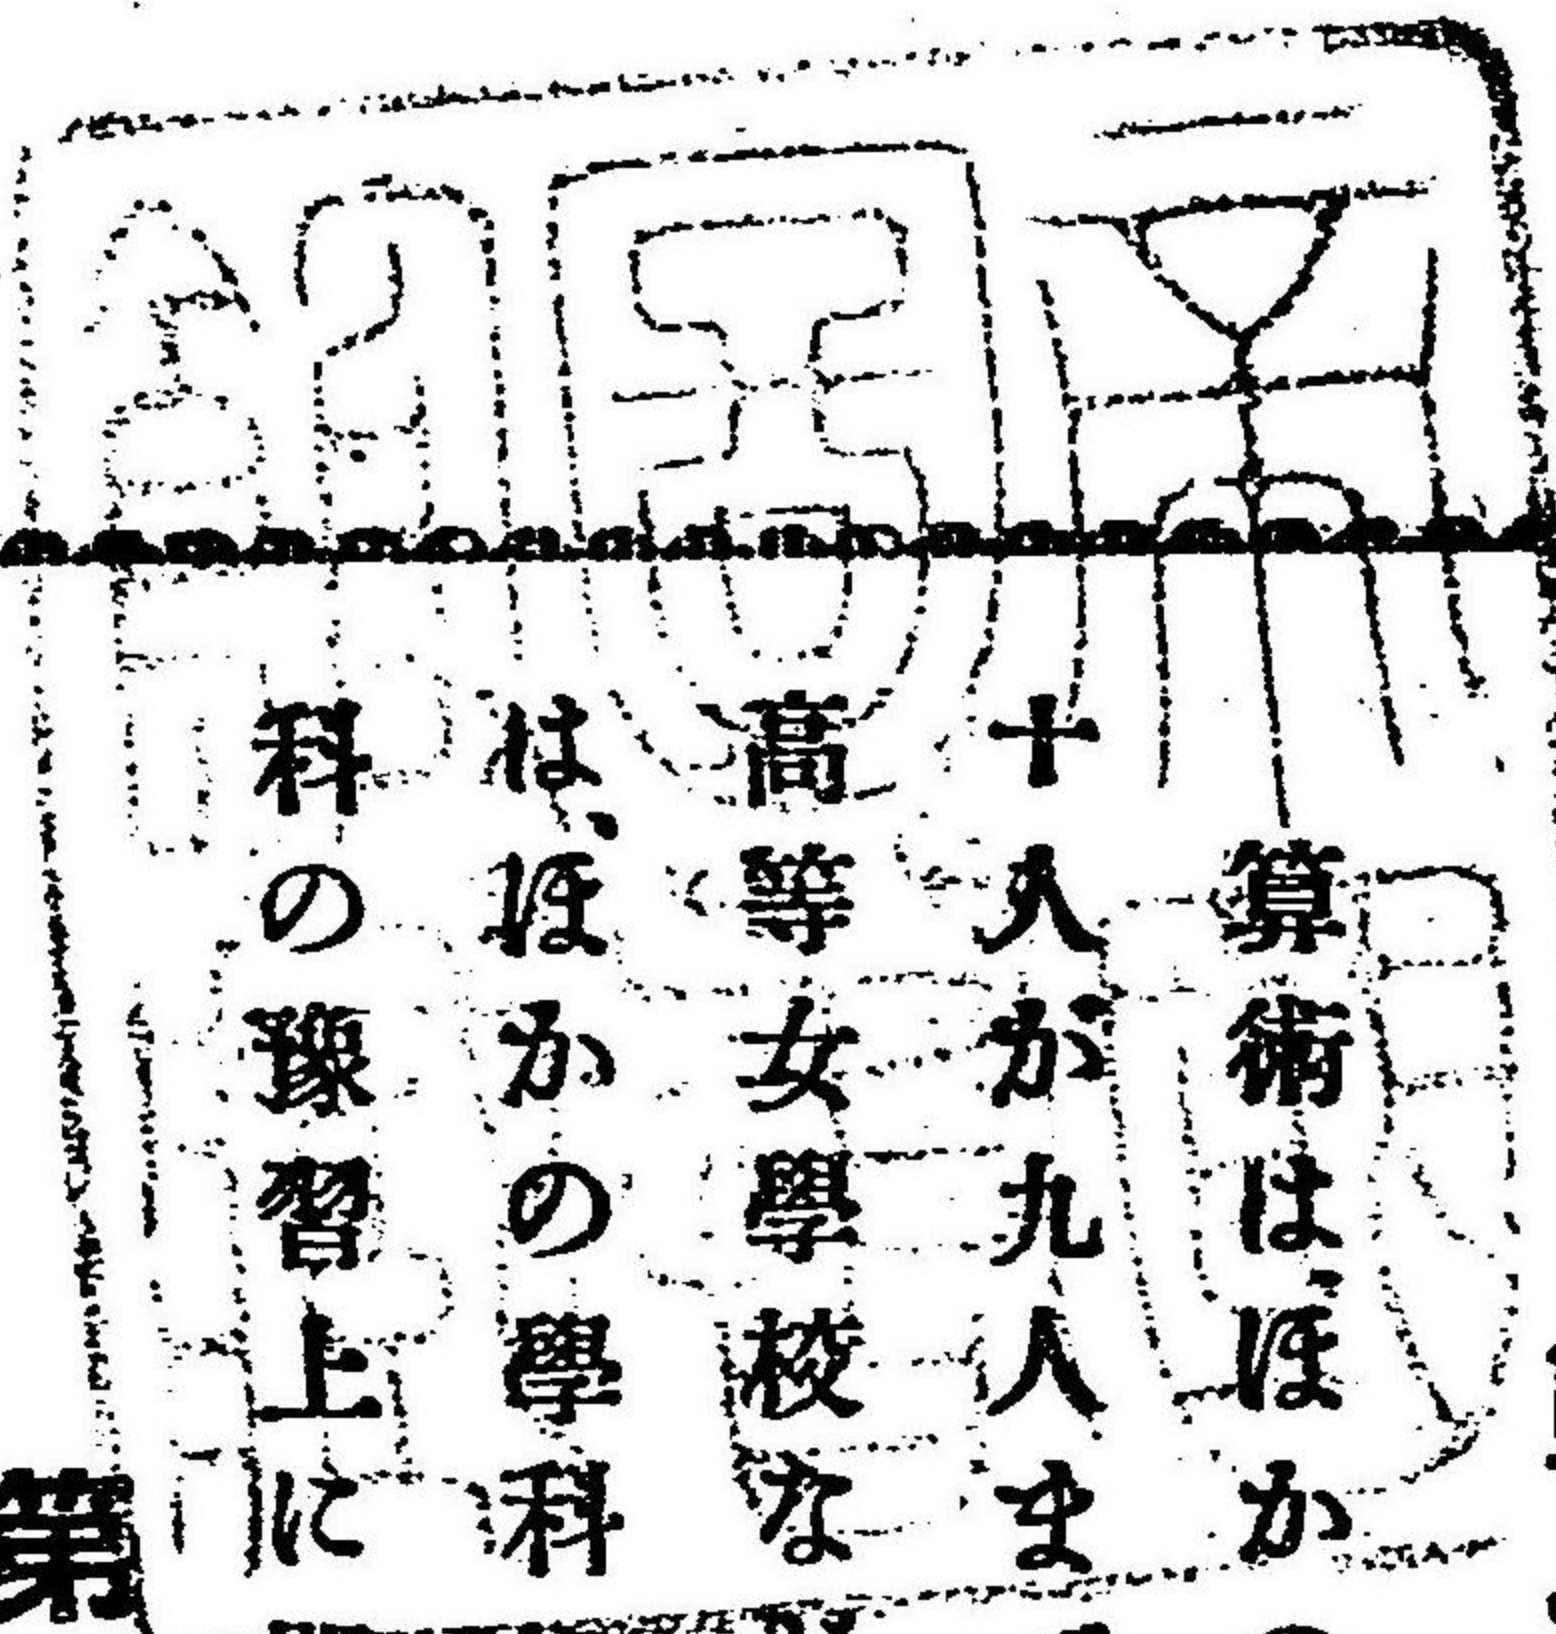 算術は、ほか
十人が九人ま
高等女學校な
は、ほかの學科
科の豫習上に
第